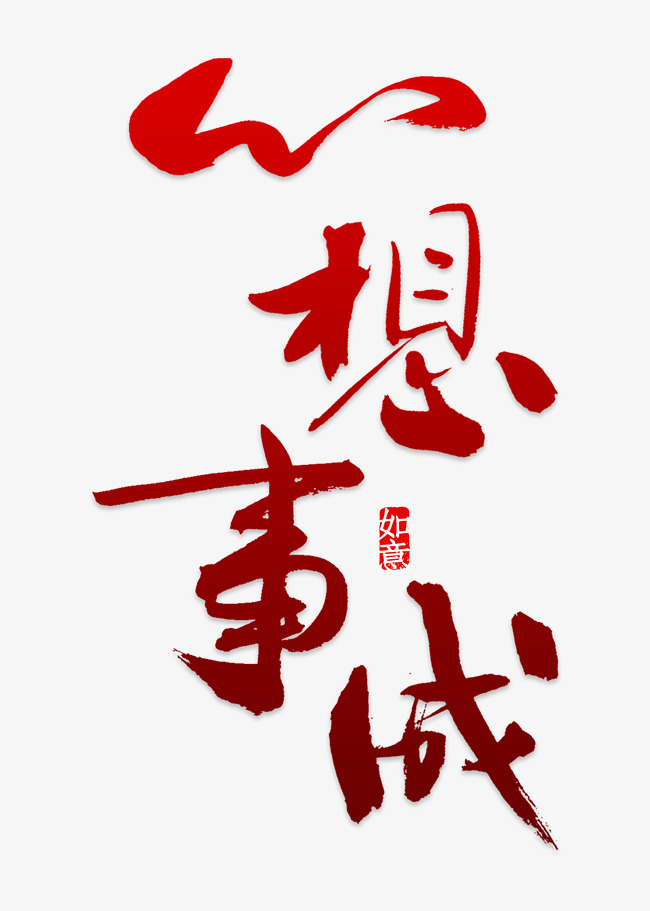 心想事成
如意